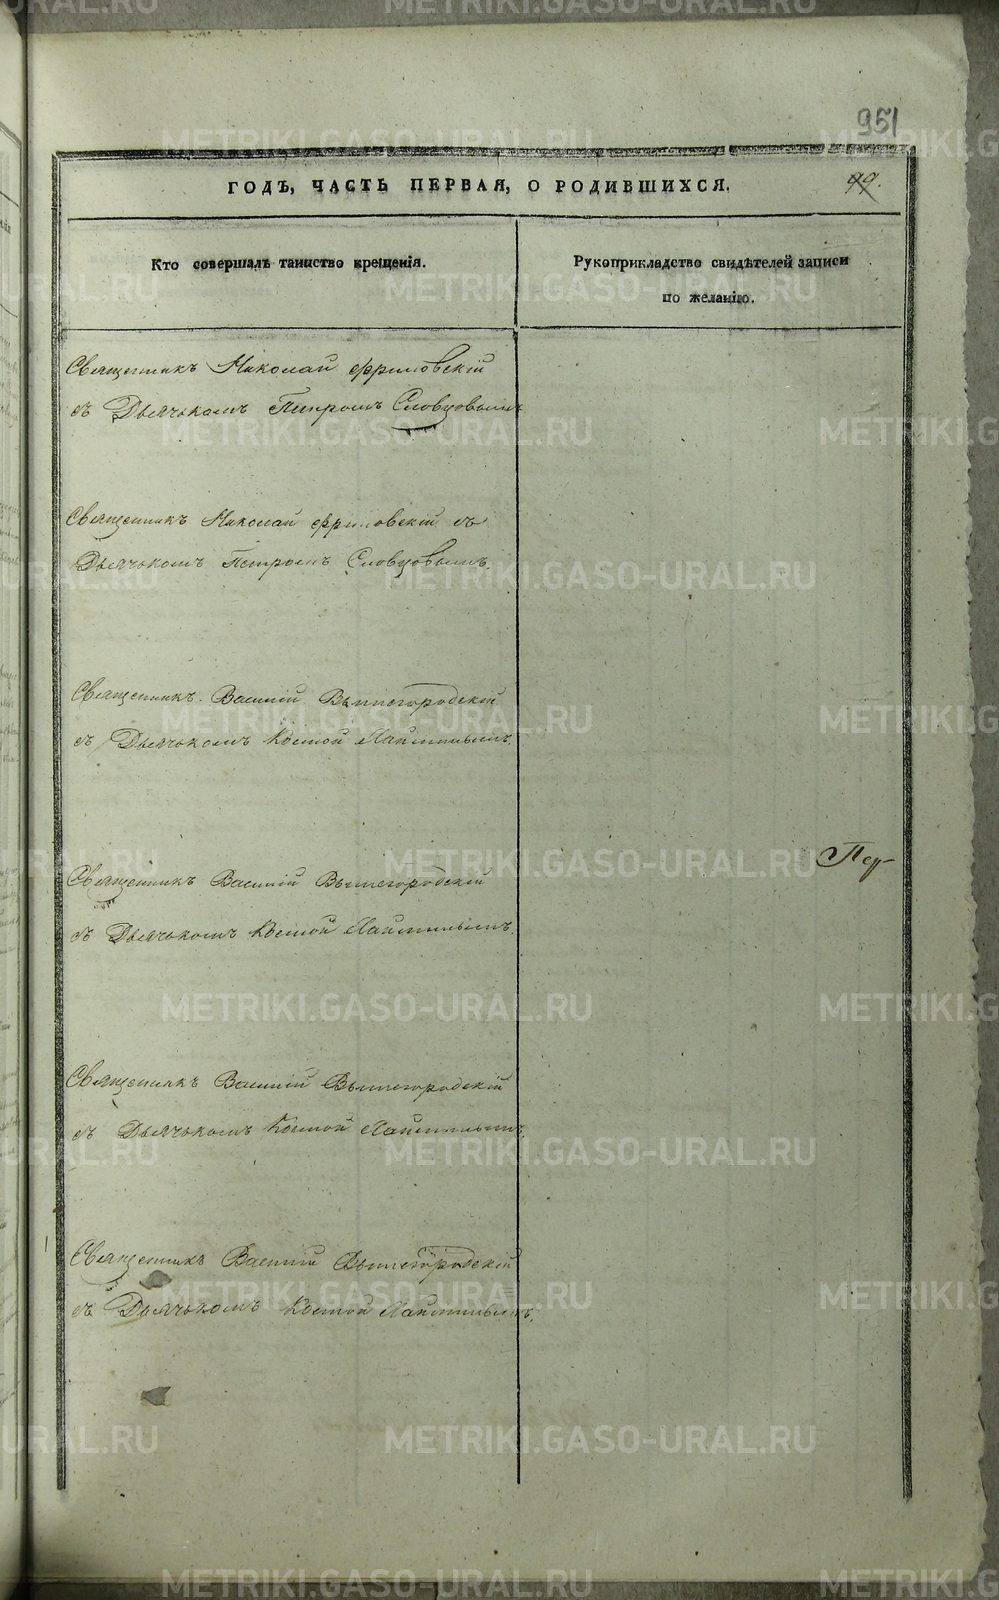 951
ГОДЪ, ЧАСТЬ ПЕРВАЯ, О РОДИВШИХСЯ.
99.
Кто совершалъ таинство крещенія.
Рукоприкладство свидѣтелей записи
по желанію.
Священникъ Николай Фриловскій
съ Дьячькомъ Петромъ Словцовымъ
Священникъ Николай Фриловскій съ
Дьячькомъ Петромъ Словцовымъ.
Священникъ Василій Вышегородскій
съ Дьячькомъ Космой Лапитинымъ.
Пер-
Священникъ Василій Вышегородскій
съ Дьячькомъ Космой Лапитинымъ.
Священникъ Василій Вышегородскій
съ Дьячькомъ Космой Лапитинымъ.
Священникъ Василій Вышегородскій
съ Дьячькомъ Космой Лапитинымъ.
METRIKI.GASO-URAL.RU